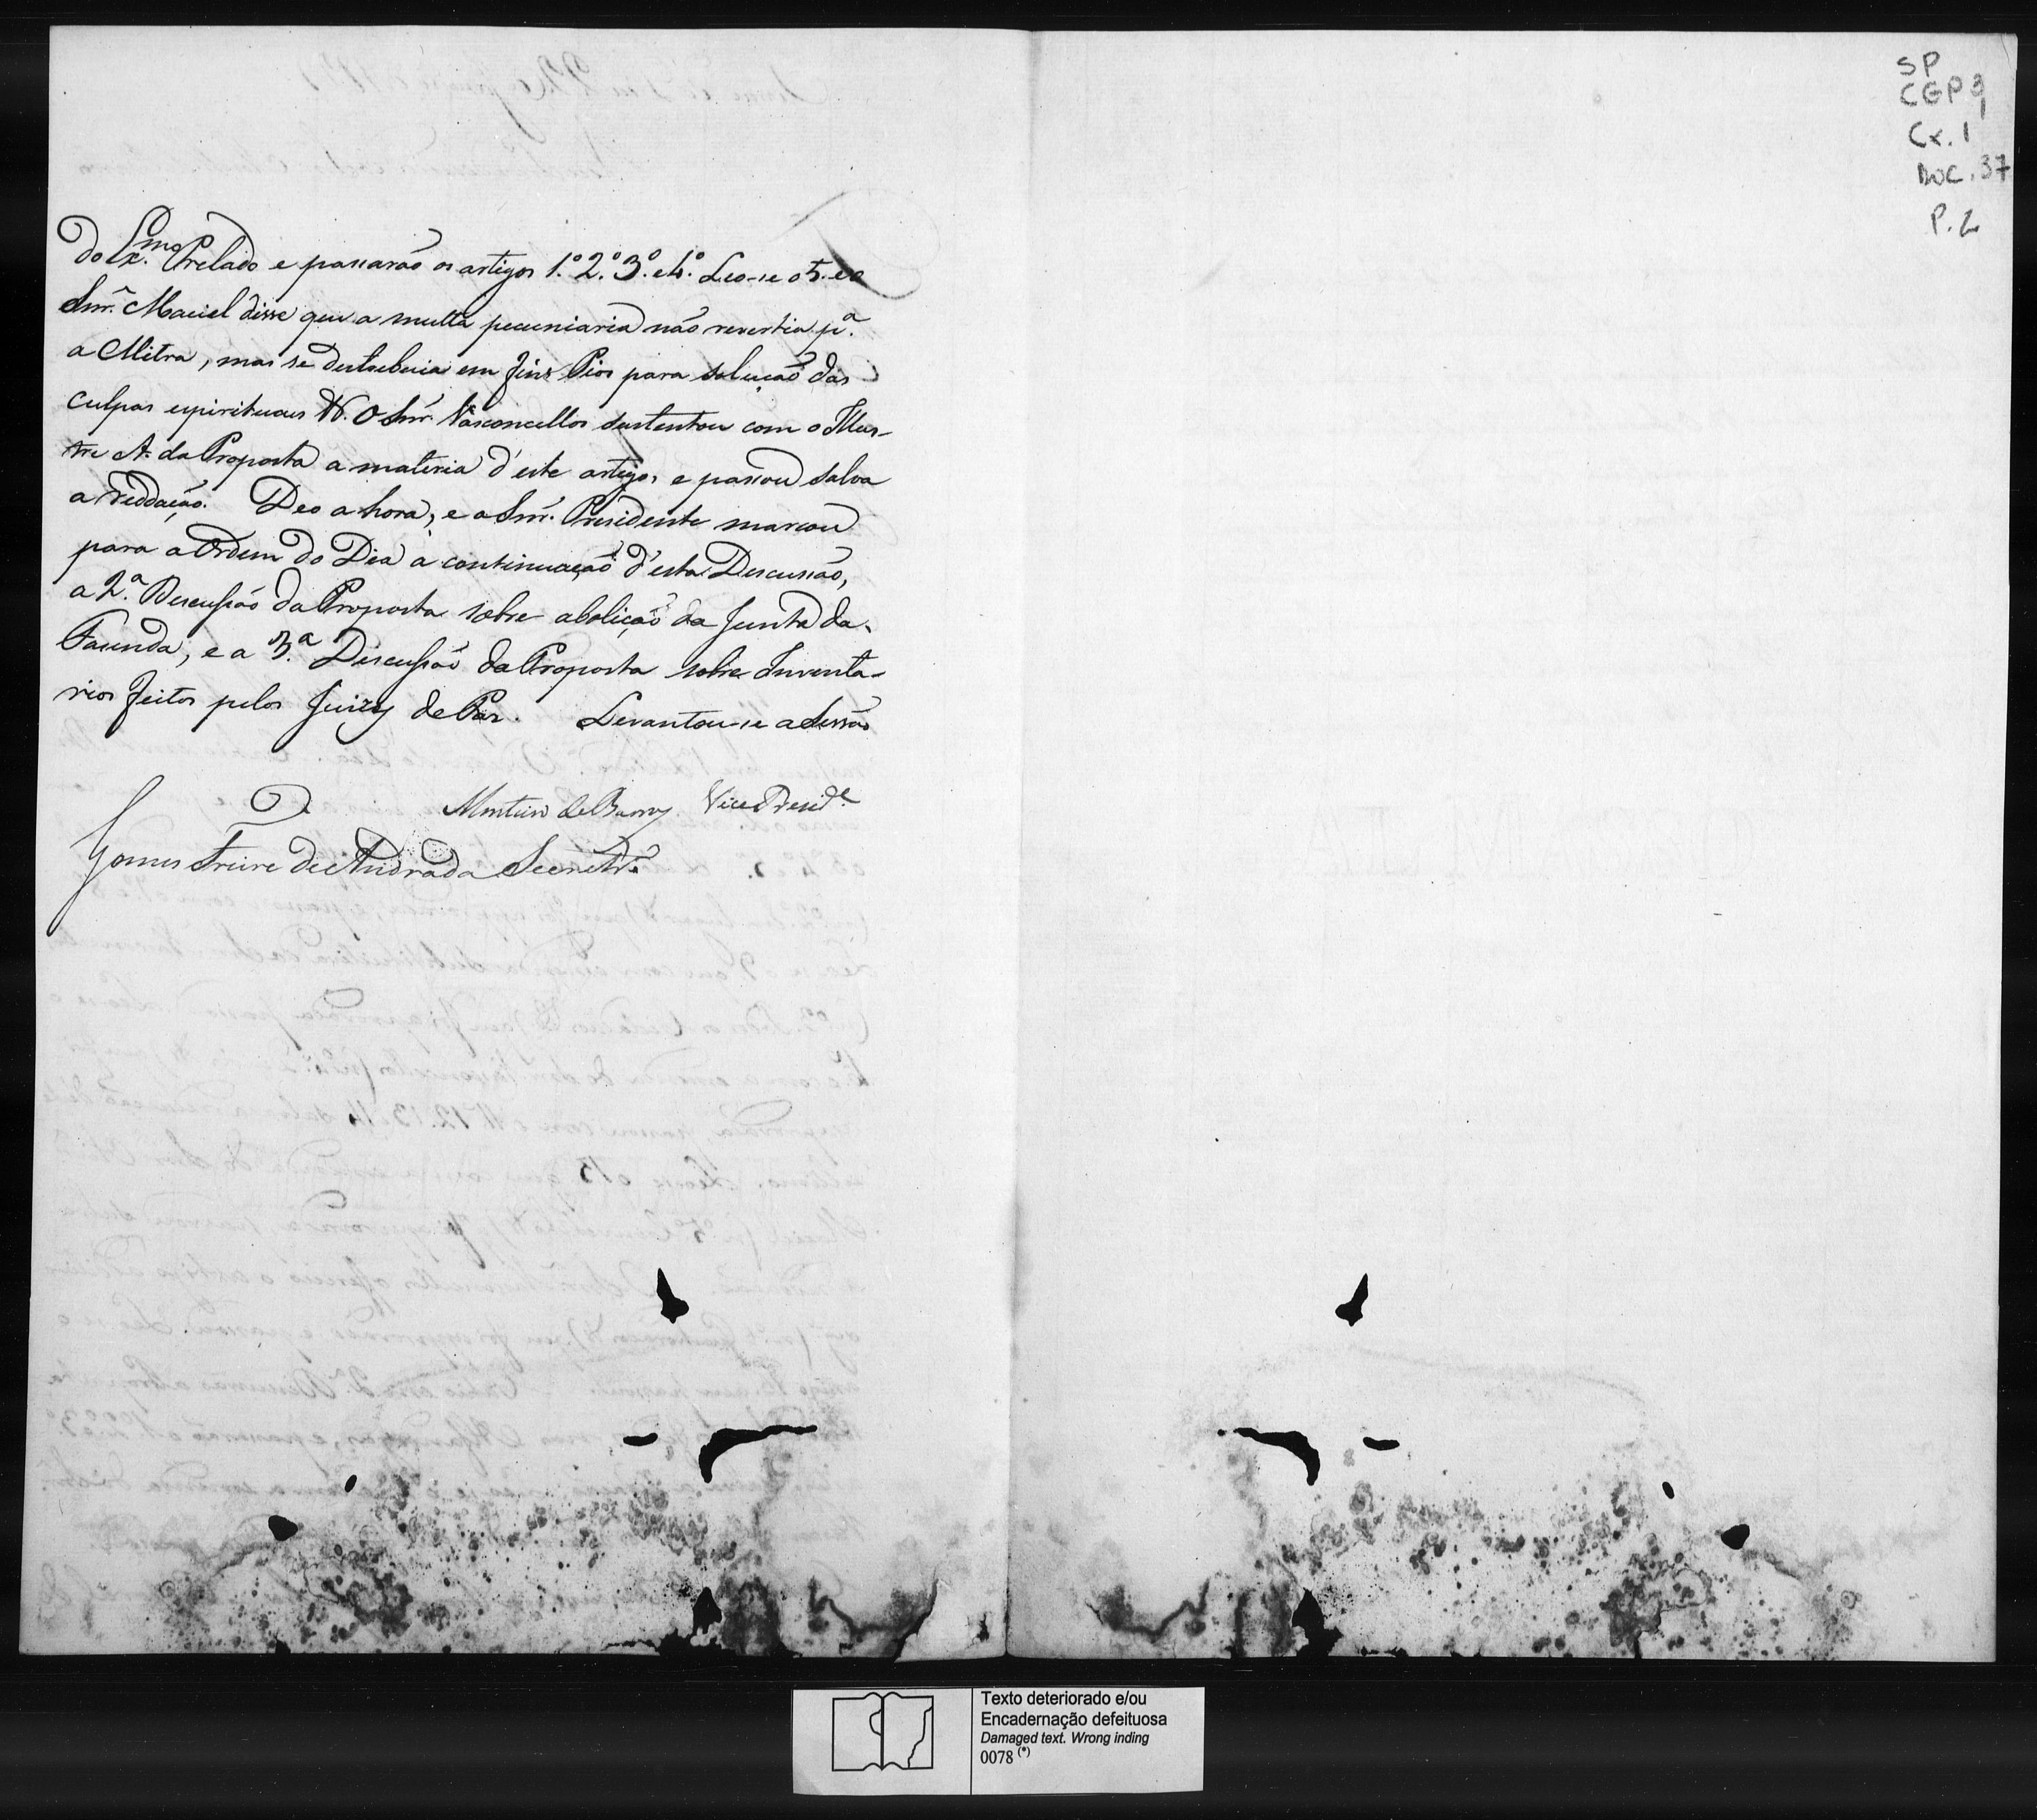 do Ex.mo Prelado e passarão os artigos 1.º 2.º 3.º e 4.º Leo-se o 5. e o
Snr. Maciel disse que a multa pecuniaria não revertia p.ª
a Mitra, mas se destribuia em fins Pios para solução das
culpas espirituaes &. O Snr. Vasconcellos sustentou com o Illus-
tre A. da Proposta a materia d'este artigo, e passou salva
a reddação. Deo a hora, e o Snr. Presidente marcou
para a Ordem do Dia a continuação d'esta Discussão,
a 2.ª Discussão da Proposta sobre abolição da Junta da
Fasenda, e a 3.ª Discussão da Proposta sobre Inventa-
rios feitos pelos Juizes de Paz. Levantou-se a Sessão
Monteiro de Barros Vice Presid.e
Gomes Freire de Andrada Secretr.º
SP
CGP 3
Cx. 1
DOC. 37
P. 2
Texto deteriorado e/ou
Encadernação defeituosa
Damaged text. Wrong inding
0078 (*)